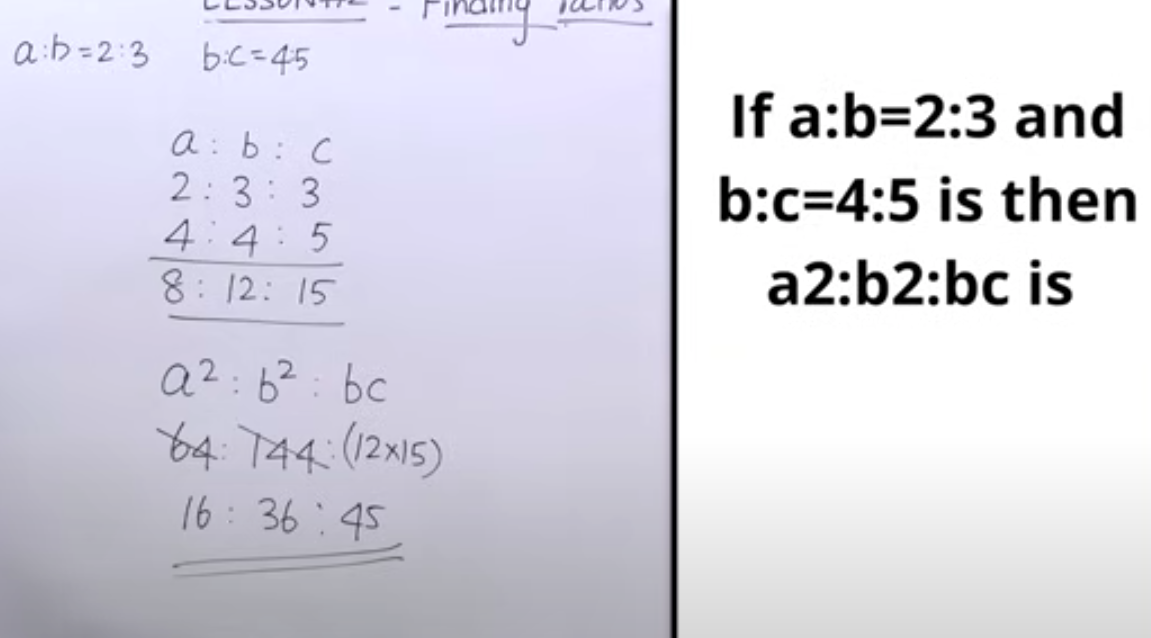 - Finding
a:b=2:3 b:c=45
a : b : c
2 : 3 : 3
4 : 4 : 5
8 : 12 : 15
a² : b² : bc
64 : 144 : (12×15)
16 : 36 : 45
If a:b=2:3 and
b:c=4:5 is then
a2:b2:bc is